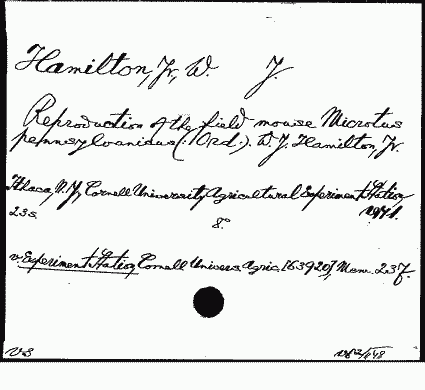 Hamilton, Jr., W. J.
Reproduction of the field mouse Microtus
pennsylvanicus (Ord.). W. J. Hamilton, Jr.
Ithaca, N.Y., Cornell University Agricultural Experiment Station
1941.
23 s. 8°
v. Experiment Station Cornell Univers. Agric. Mem. 237.
VS